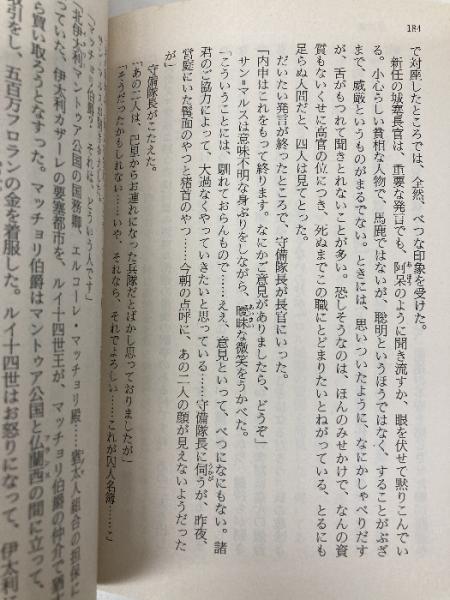 184
で対座したところでは、全然、べつな印象を受けた。
新任の城塞長官は、重要な発言でも、阿呆のように聞き流すか、眼を伏せて黙りこんでい
る。小心らしい貧相な人物で、馬鹿ではないが、聡明というほうではなく、することがぶざ
まで、威厳というものがまるでない。ときには、思いついたように、なにかしゃべりだす
が、舌がもつれて聞きとれないことが多い。恐しそうなのは、ほんのみせかけで、なんの資
質もないくせに高官の位につき、死ぬまでこの職にとどまりたいとねがっている、とるにも
足らぬ人間だと、四人は見てとった。
だいたい発言が終ったところで、守備隊長が長官にいった。
「内申はこれをもって終ります。なにかご意見がありましたら、どうぞ」
サン・マルスは意味不明な身ぶりをしながら、曖昧な微笑をうかべた。
「こういうことには、馴れておらんもので……ええ、意見といって、べつになにもない。諸
君のご協力によって、大過なくやっていきたいと思っている……守備隊長に伺うが、昨夜、
営庭にいた髯面のやつと猪首のやつ……今朝の点呼に、あの二人の顔が見えないようだった
が」
守備隊長がこたえた。
「あの二人は、巴里からお連れになった兵隊だとばかし思っておりましたが」
「そうだったかもしれない……いや、それなら、それでよろしい……これが囚人名簿……こ
「マッチョリ伯爵？ それは、どういう人です」
「北伊太利マントゥア公国の国務卿、エルコレ・マッチョリ殿……猶太人組合の担保に
っていた、伊太利カザーレの要塞都市を、ルイ十四世王が、マッチョリ伯爵の仲介で猶太
ら買い取ろうとなすった。マッチョリ伯爵はマントゥア公国と仏蘭西の間に立って、
取引をし、五百万フロランの金を着服した。ルイ十四世はお怒りになって、伊太利